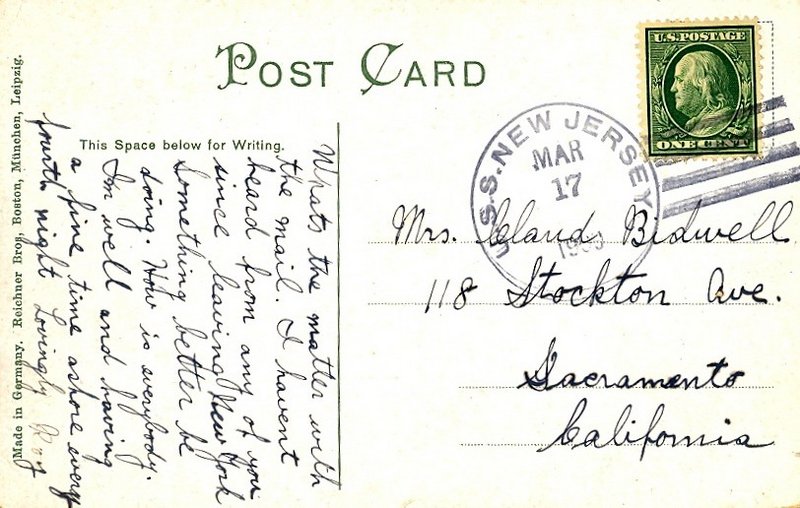 POST CARD
U.S. POSTAGE
ONE CENT
This Space below for Writing.
U.S.S. NEW JERSEY
MAR
17
Mrs. Claud, Bidwell
118 Stockton Ave.
Sacramento
California
Whats the matter with
the mail. I havent
heard from any of you
since leaving New York
Something better be
doing. How is everybody.
I'm well and having
a fine time ashore every
fourth night Lovingly Roy
Made in Germany. Reichner Bros, Boston, München, Leipzig.